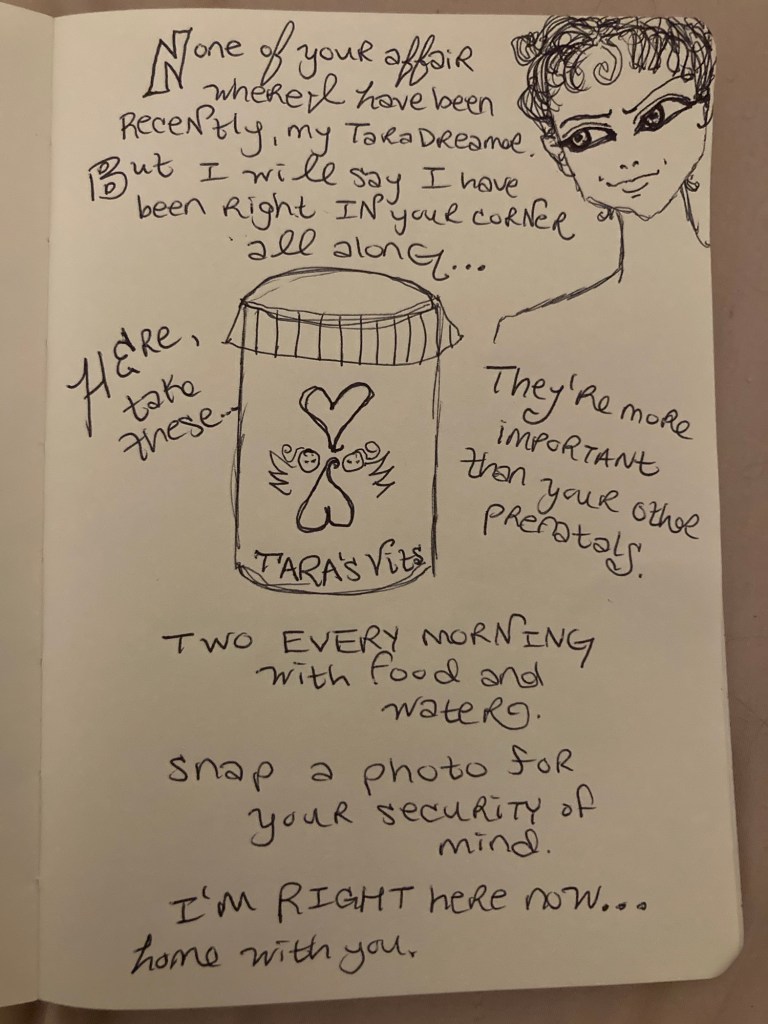 None of your affair
where I have been
Recently, my TaraDreamoe.
But I will say I have
been Right IN your corner
all along...
HERe,
take
these...
TARA'S Vits
They're more
IMPORTANT
than your other
PReNatals.
TWO EVERY MORNING
with food and
water.
Snap a photo for
your security of
mind.
I'M RIGHT here now...
home with you.